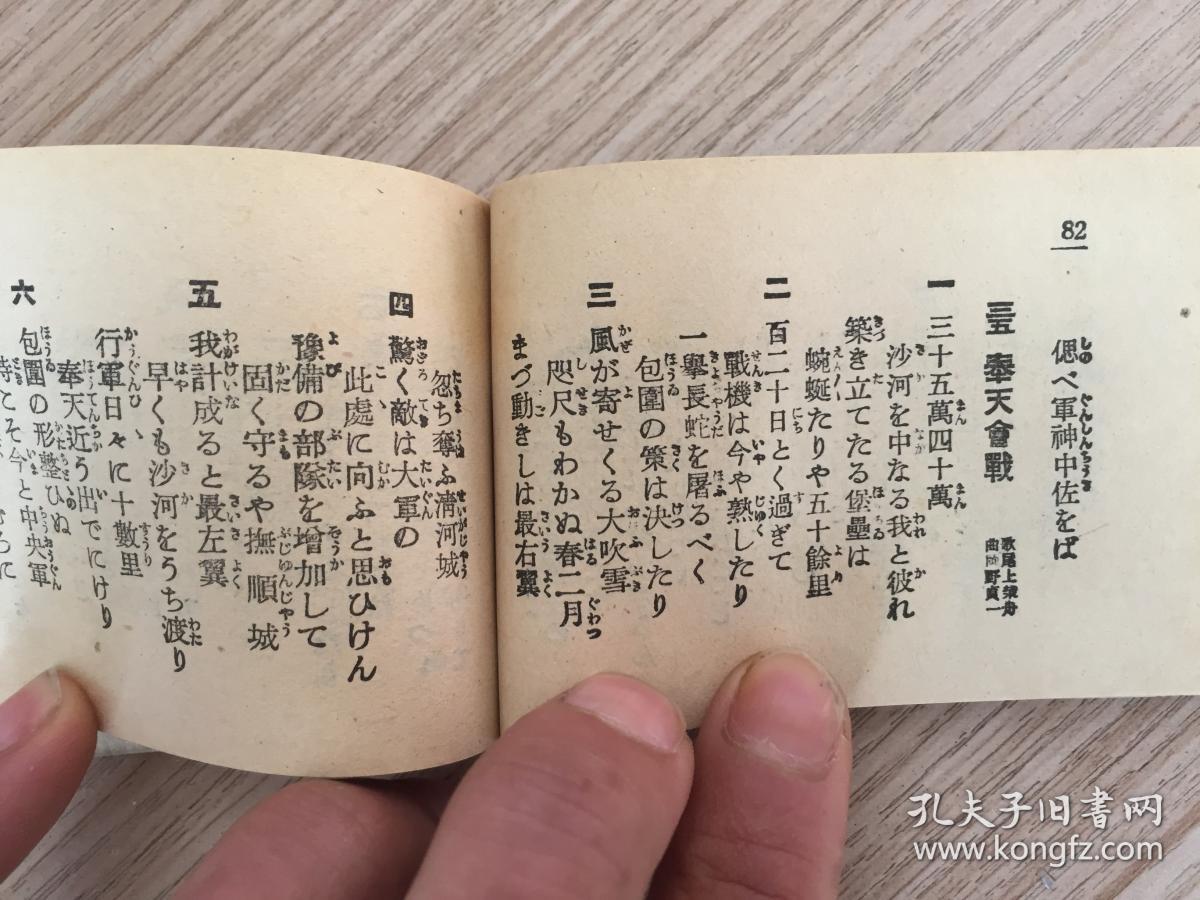 82
偲べ軍神中佐をば
三五 奉天會戰
歌 尾上柴舟
曲 岡野貞一
一 三十五萬四十萬
沙河を中なる我と彼れ
築き立てたる堡壘は
蜿蜒たりや五十餘里
二 百二十日とく過ぎて
戰機は今や熟したり
一擧長蛇を屠るべく
包圍の策は決したり
三 風が寄せくる大吹雪
咫尺もわかぬ春二月
まづ動きしは最右翼
忽ち奪ふ淸河城
四 驚く敵は大軍の
此處に向ふと思ひけん
豫備の部隊を增加して
固く守るや撫順城
五 我計成ると最左翼
早くも沙河をうち渡り
行軍日々に十數里
奉天近う出でにけり
六 包圍の形整ひぬ
時こそ今と中央軍
孔夫子旧书网
www.kongfz.com